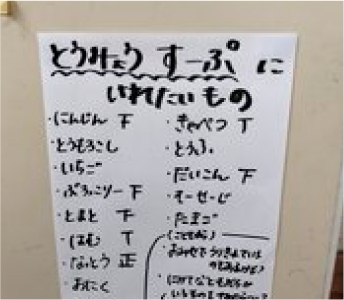 とうみょう すーぷ に
いれたい もの
・にんじん 下
・とうもろこし
・いちご
・ぶろっこりー 下
・とまと 下
・はむ T
・なっとう 正
・おにく
・きゃべつ T
・とうふ
・だいこん 下
・そーせーじ
・たまご